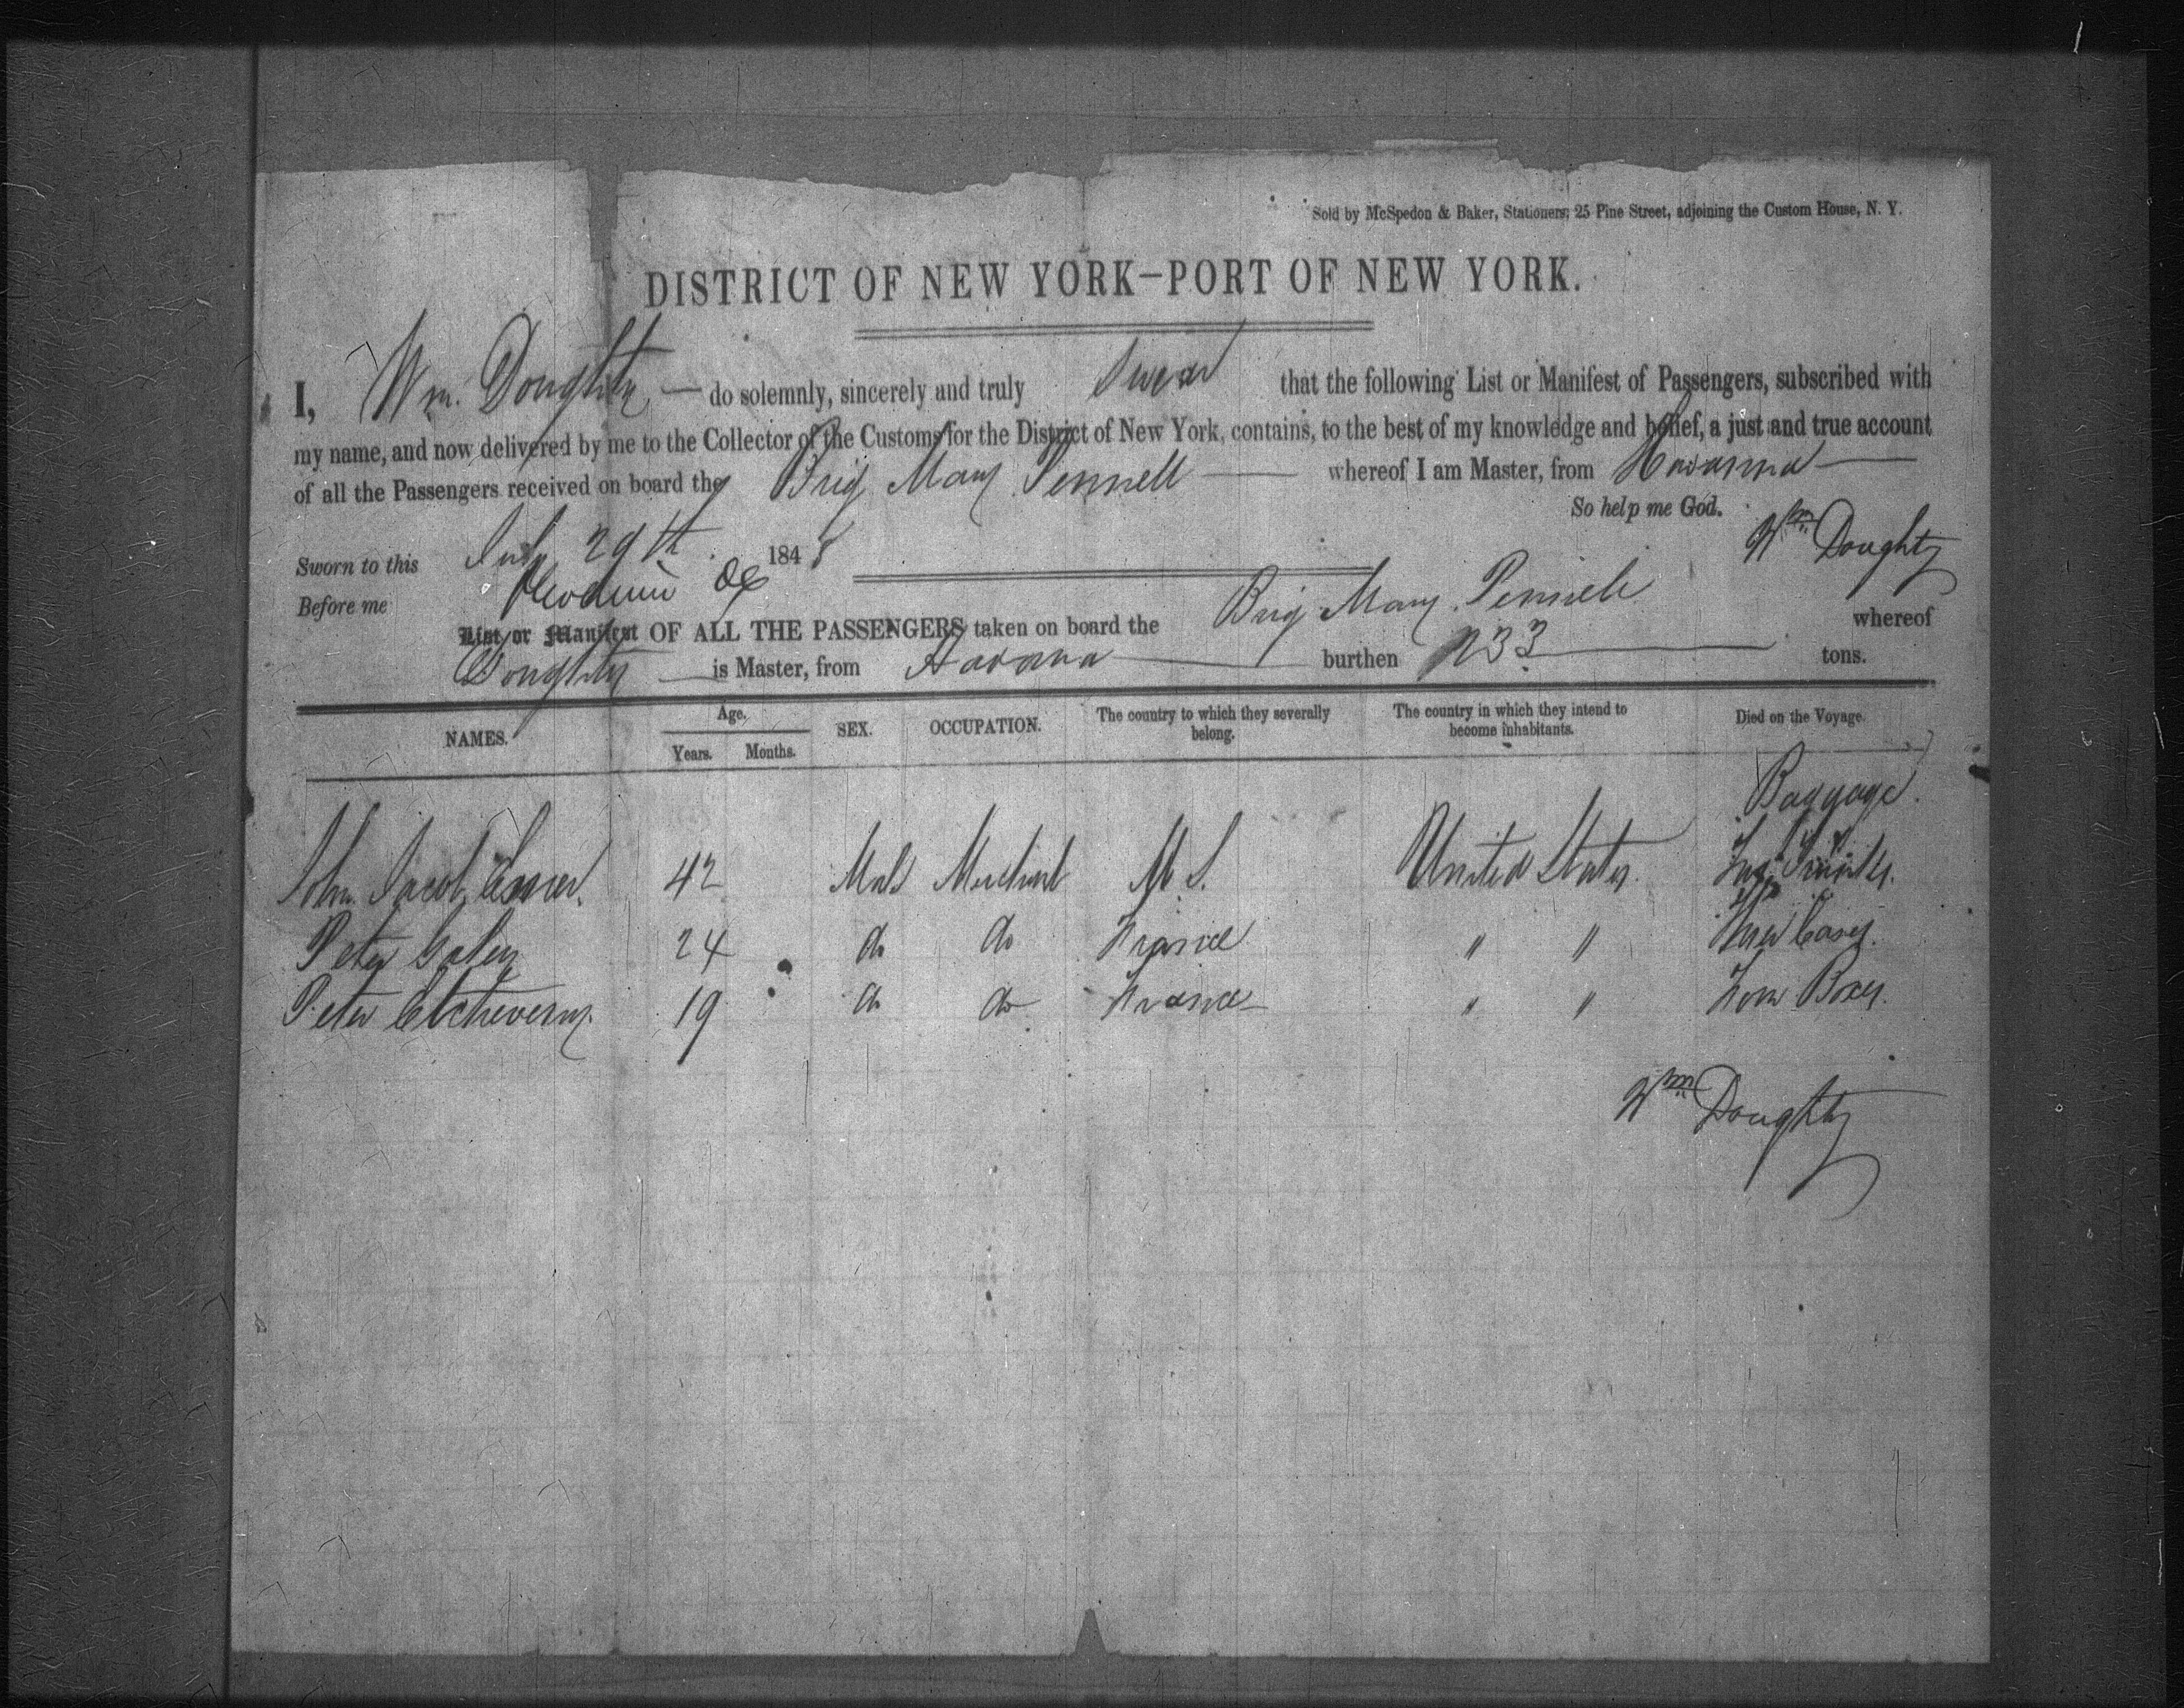 Sold by McSpedon & Baker, Stationers, 25 Pine Street, adjoining the Custom House, N. Y.
DISTRICT OF NEW YORK—PORT OF NEW YORK.
I, Wm. Doughty — do solemnly, sincerely and truly Swear that the following List or Manifest of Passengers, subscribed with
my name, and now delivered by me to the Collector of the Customs for the District of New York, contains, to the best of my knowledge and belief, a just and true account
of all the Passengers received on board the Brig Mary Pennell — whereof I am Master, from Havanna —
So help me God.
Wm Doughty
Sworn to this July 29th 1848
Before me
List or Manifest OF ALL THE PASSENGERS taken on board the Brig Mary Pennell whereof
Doughty — is Master, from Havana — burthen 233 — tons.
NAMES. Age. Years. Months. SEX. OCCUPATION. The country to which they severally belong. The country in which they intend to become inhabitants. Died on the Voyage.
Baggage.
John Jacob 42 Male Merchant United States. Trunks.
Peter 24 do do France " "
Peter Etcheverry. 19 do do France " " Boxes.
Wm Doughty